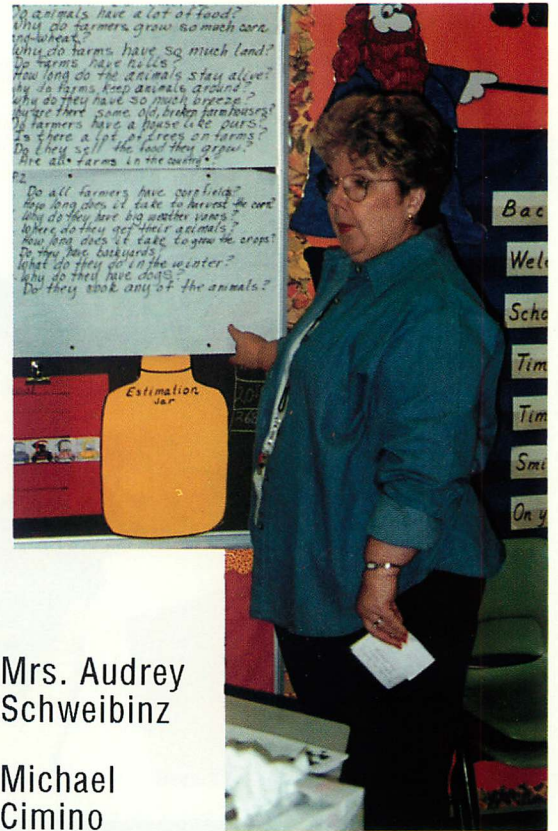 Do animals have a lot of food?
Why do farmers grow so much corn
and wheat?
Why do farms have so much land?
Do farms have hills?
How long do the animals stay alive?
Why do farms keep animals around?
Why do they have so much breeze?
are there some old, broken farmhouses?
Do farmers have a house like ours?
Is there a lot of trees on farms?
Do they sell the food they grow?
Are all farms in the country?
P2
Do all farmers have cornfields?
How long does it take to harvest the corn?
Why do they have big weather vanes?
Where do they get their animals?
How long does it take to grow the crops?
Do they have backyards
What do they do in the winter?
Why do they have dogs?
Do they cook any of the animals?
Estimation
Jar
Bac
Welc
Scho
Tim
Tim
Smi
On y
Mrs. Audrey
Schweibinz
Michael
Cimino